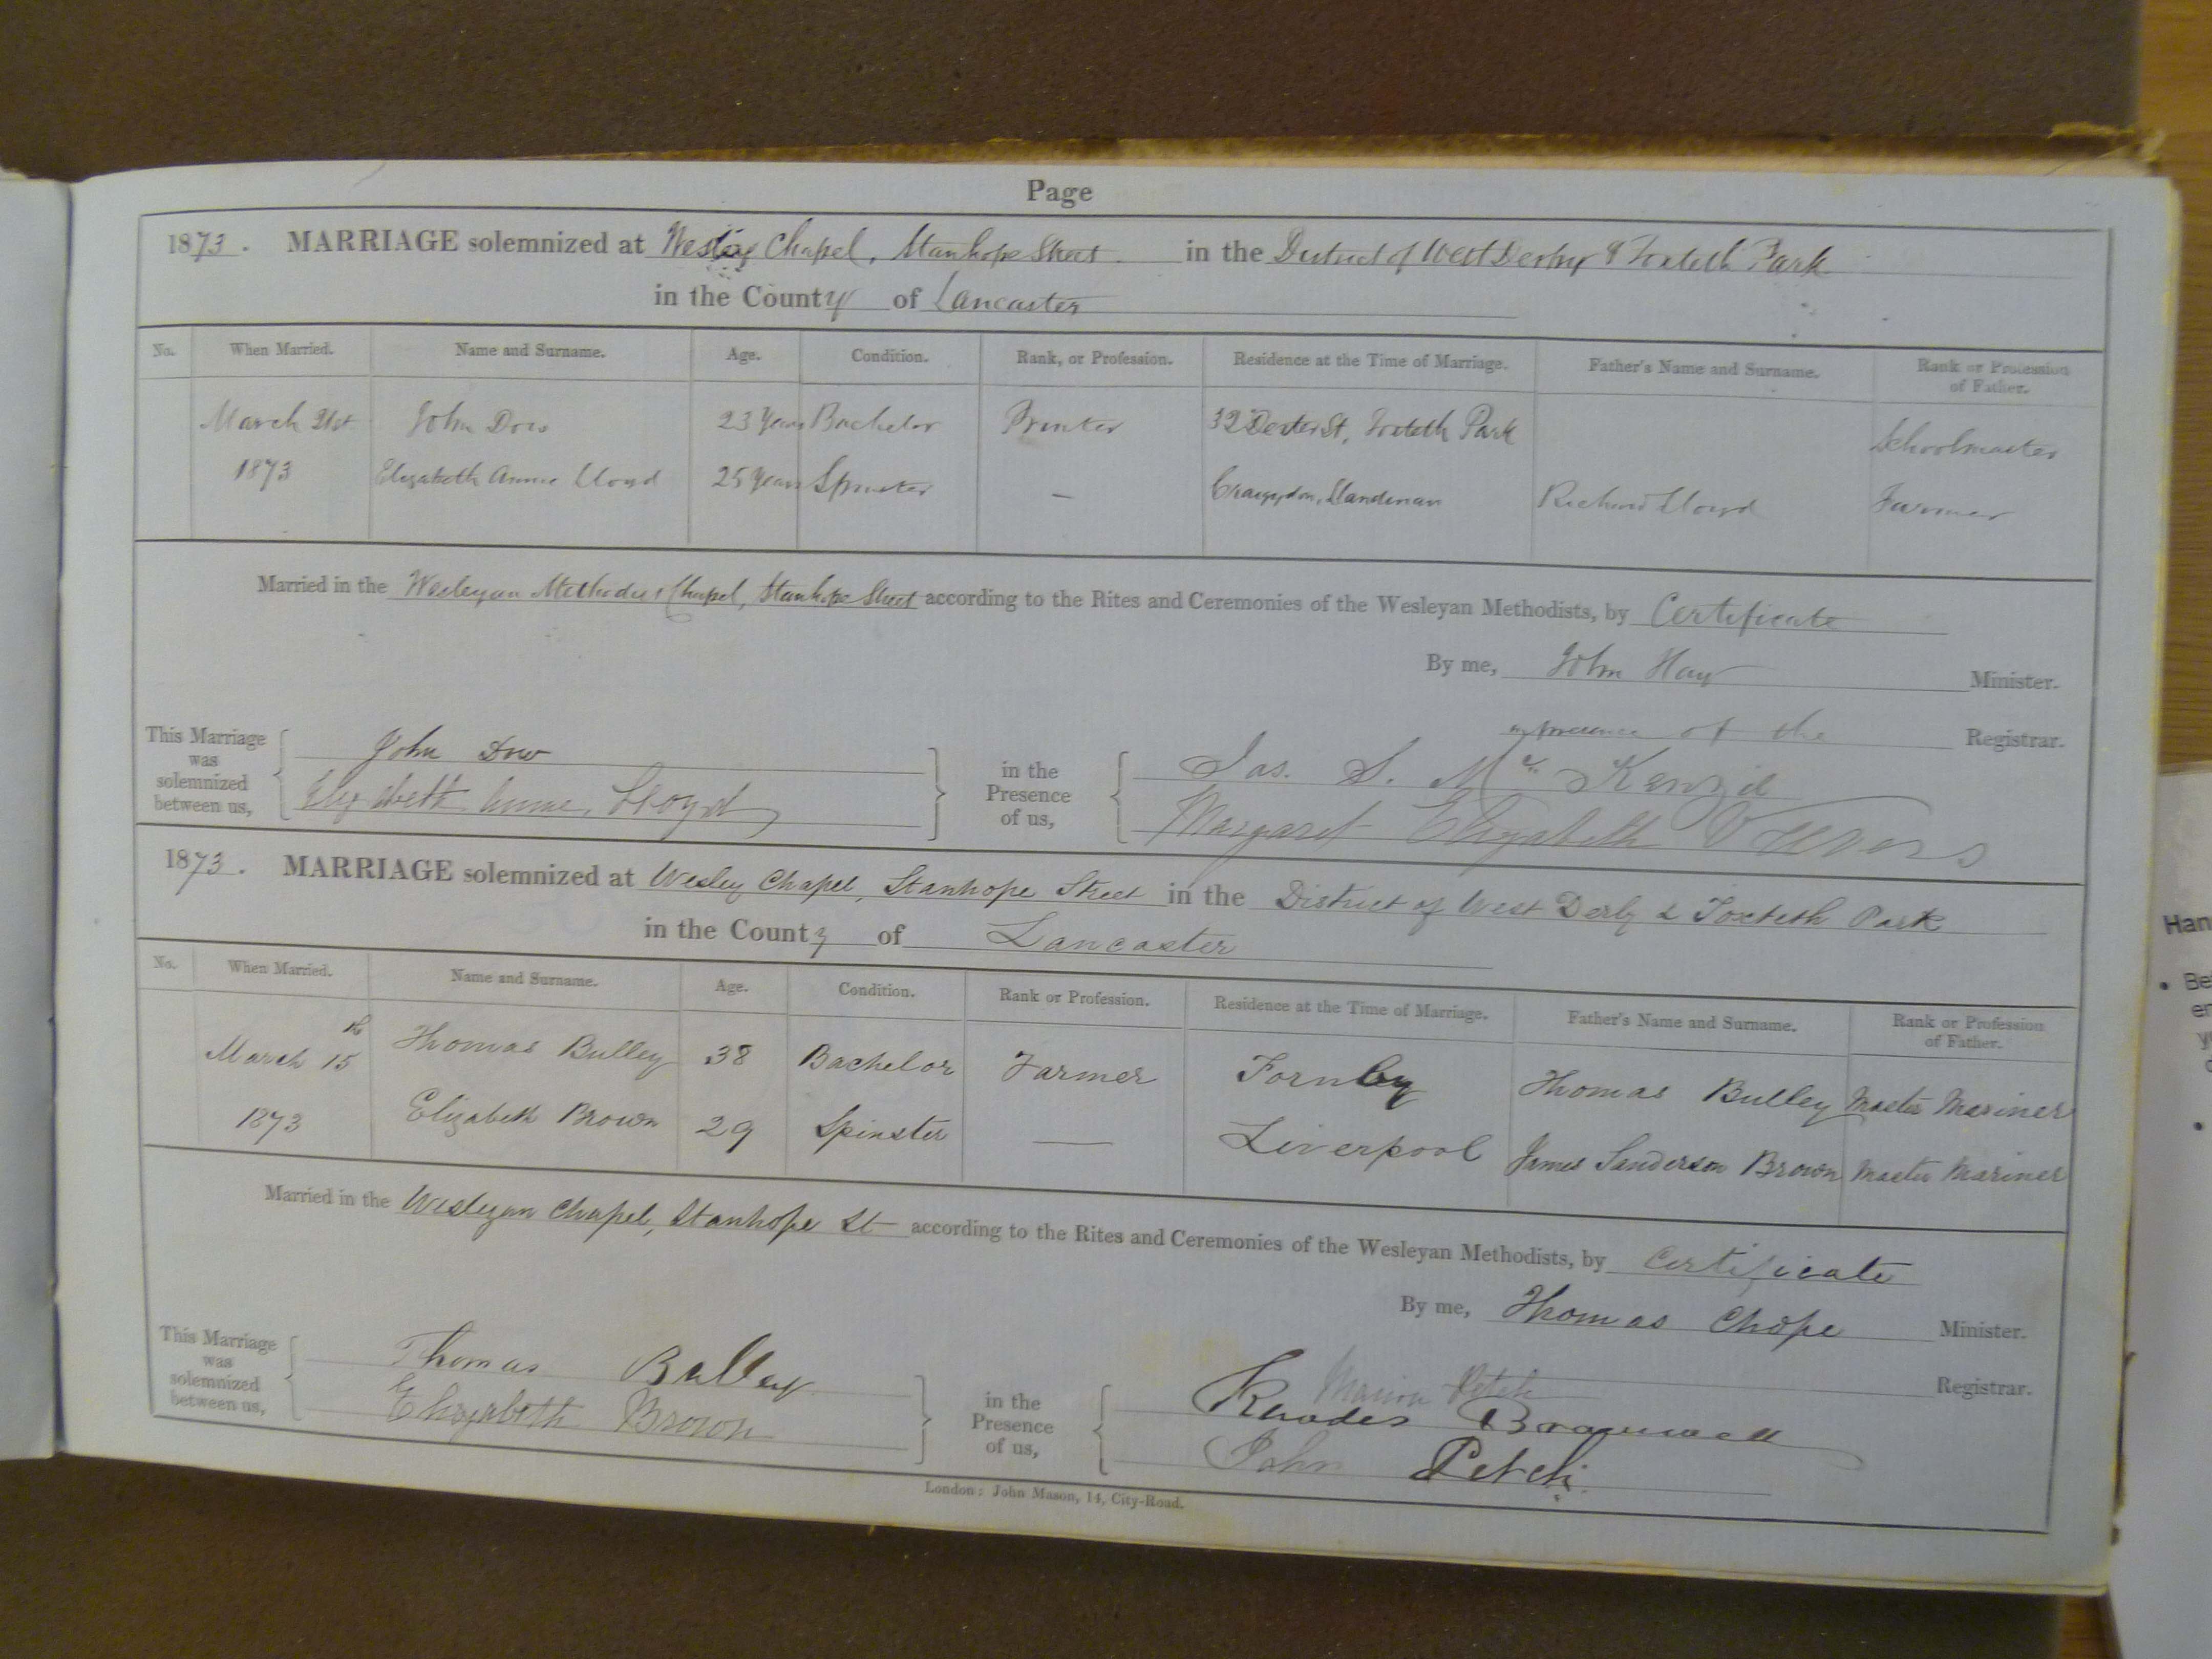 Page
1873. MARRIAGE solemnized at Wesley Chapel, Stanhope Street in the District of West Derby & Toxteth Park
in the County of Lancaster
No. When Married. Name and Surname. Age. Condition. Rank, or Profession. Residence at the Time of Marriage. Father's Name and Surname. Rank or Profession of Father.
March 21st John Dow 23 Years Bachelor Printer 32 Dexter St, Toxteth Park Schoolmaster
1873 Elizabeth Annie Lloyd 25 Years Spinster — Llandinam Richard Lloyd Farmer
Married in the Wesleyan Methodist Chapel, Stanhope Street according to the Rites and Ceremonies of the Wesleyan Methodists, by Certificate
By me, John Hay Minister.
in presence of the Registrar.
This Marriage was solemnized between us,
John Dow
Elizabeth Annie Lloyd
in the Presence of us,
Jas. S. McKenzie
Margaret Elizabeth
1873. MARRIAGE solemnized at Wesley Chapel, Stanhope Street in the District of West Derby & Toxteth Park
in the County of Lancaster
No. When Married. Name and Surname. Age. Condition. Rank or Profession. Residence at the Time of Marriage. Father's Name and Surname. Rank or Profession of Father.
March 15th Thomas Bulley 38 Bachelor Farmer Formby Thomas Bulley Master Mariner
1873 Elizabeth Brown 29 Spinster — Liverpool James Sanderson Brown Master Mariner
Married in the Wesleyan Chapel, Stanhope St according to the Rites and Ceremonies of the Wesleyan Methodists, by Certificate
By me, Thomas Chope Minister.
Registrar.
This Marriage was solemnized between us,
Thomas Bulley
Elizabeth Brown
in the Presence of us,
Marion Petch
Rhodes Bramwell
John Petch
London: John Mason, 14, City-Road.
Han
• Be